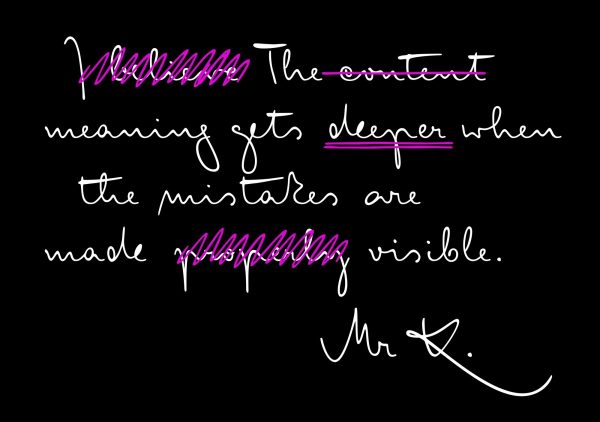 I believe The content
meaning gets deeper when
the mistakes are
made properly visible.
Mr K.